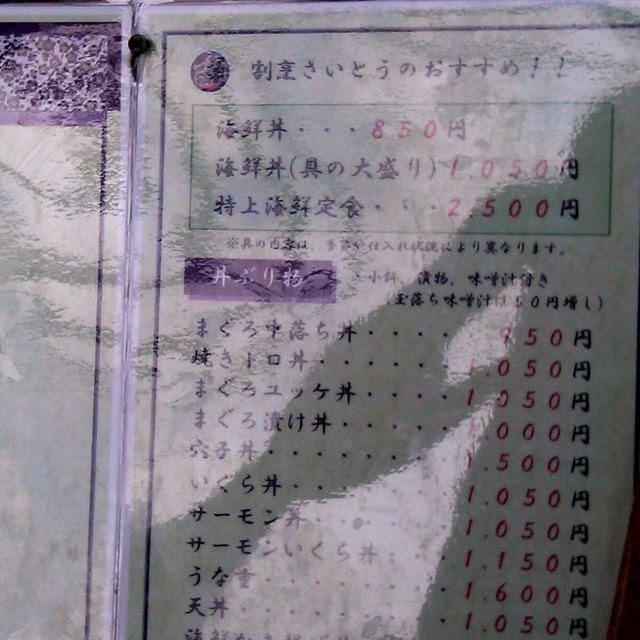 割烹さいとうのおすすめ！！
海鮮丼・・・850円
海鮮丼(具の大盛り)1.050円
特上海鮮定食・・・2.500円
※具の内容は 季節や仕入れ状況により異なります。
丼ぶり物
小鉢 漬物、味噌汁付き
玉落ち味噌汁は50円増し)
まぐろ中落ち丼・・・・ 850円
焼きトロ丼・・・・・ 1.050円
まぐろユッケ丼・・・・ 1.050円
まぐろ漬け丼・・・・・ 1.000円
穴子丼・・・・・・・ 1.500円
いくら丼・・・・・・ 1.050円
サーモン丼・・・・・ 1.050円
サーモンいくら丼・・・ 1.150円
うな重・・・・・・・ 1.600円
天丼・・・・・・・・ 1.050円
海鮮